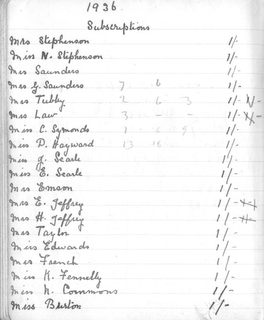 1936
Subscriptions
Mrs Stephenson 1/-
Miss N. Stephenson 1/-
Mrs Saunders 1/-
Mrs G. Saunders 7 6 1/-
Mrs Tubby 2 6 3 1/-
Mrs Law 3 - - 1/-
Miss C. Symonds 1 6 9 1/-
Miss D. Hayward 13 1/-
Miss J. Searle 1/-
Miss E. Searle 1/-
Mrs Emson 1/-
Mrs E. Jeffrey 1/-
Mrs H. Jeffrey 1/-
Mrs Taylor 1/-
Miss Edwards 1/-
Mrs French 1/-
Miss K. Fennelly 1/-
Miss N. Commons 1/-
Miss Burton 1/-